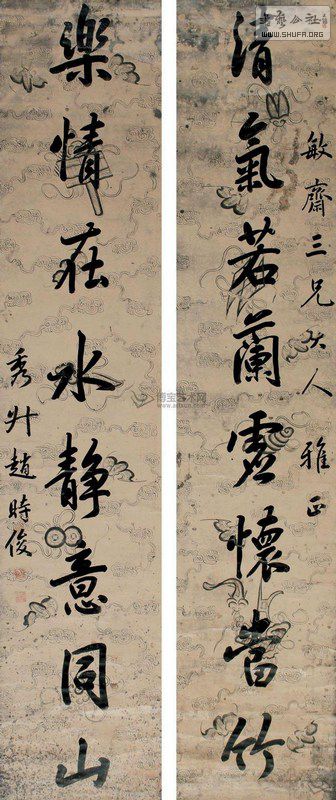 敏齋三兄大人雅正
清氣若蘭虛懷當竹
樂情在水静意同山
秀升趙時俊
書藝公社
WWW.SHUFA.ORG
博宝艺术网
artxun.com